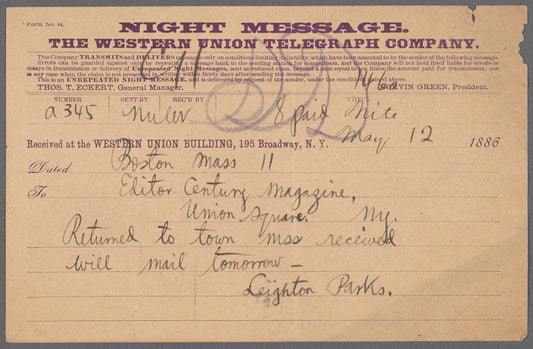 Form No. 44.
NIGHT MESSAGE.
THE WESTERN UNION TELEGRAPH COMPANY.
This Company TRANSMITS and DELIVERS messages only on conditions limiting its liability, which have been assented to by the sender of the following message.
Errors can be guarded against only by repeating a message back to the sending station for comparison, and the Company will not hold itself liable for errors or
delays in transmission or delivery of Unrepeated Night Messages, sent at reduced rates, beyond a sum equal to ten times the amount paid for transmission; nor
in any case when the claim is not presented in writing within thirty days after sending the message.
This is an UNREPEATED NIGHT MESSAGE, and is delivered by request of the sender, under the conditions named above.
THOS. T. ECKERT, General Manager. NORVIN GREEN, President.
NUMBER SENT BY REC'D BY
a345 8 paid Nite
May 12 1886
Received at the WESTERN UNION BUILDING, 195 Broadway, N. Y.
Dated Boston Mass 11
To Editor Century Magazine,
Union Square. Ny.
Returned to town mss received
will mail tomorrow —
Leighton Parks.